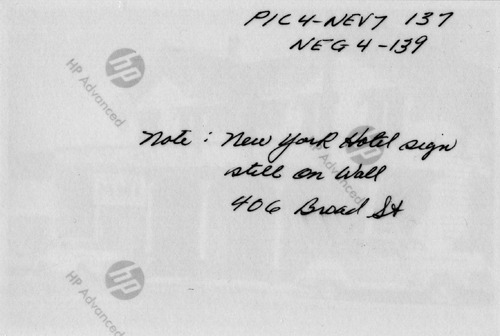 PIC 4-NEV7 137
NEG 4-139
hp
HP Advanced
Note: New York Hotel sign
still on Wall
hp
HP Advanced
406 Broad St
hp
HP Advanced